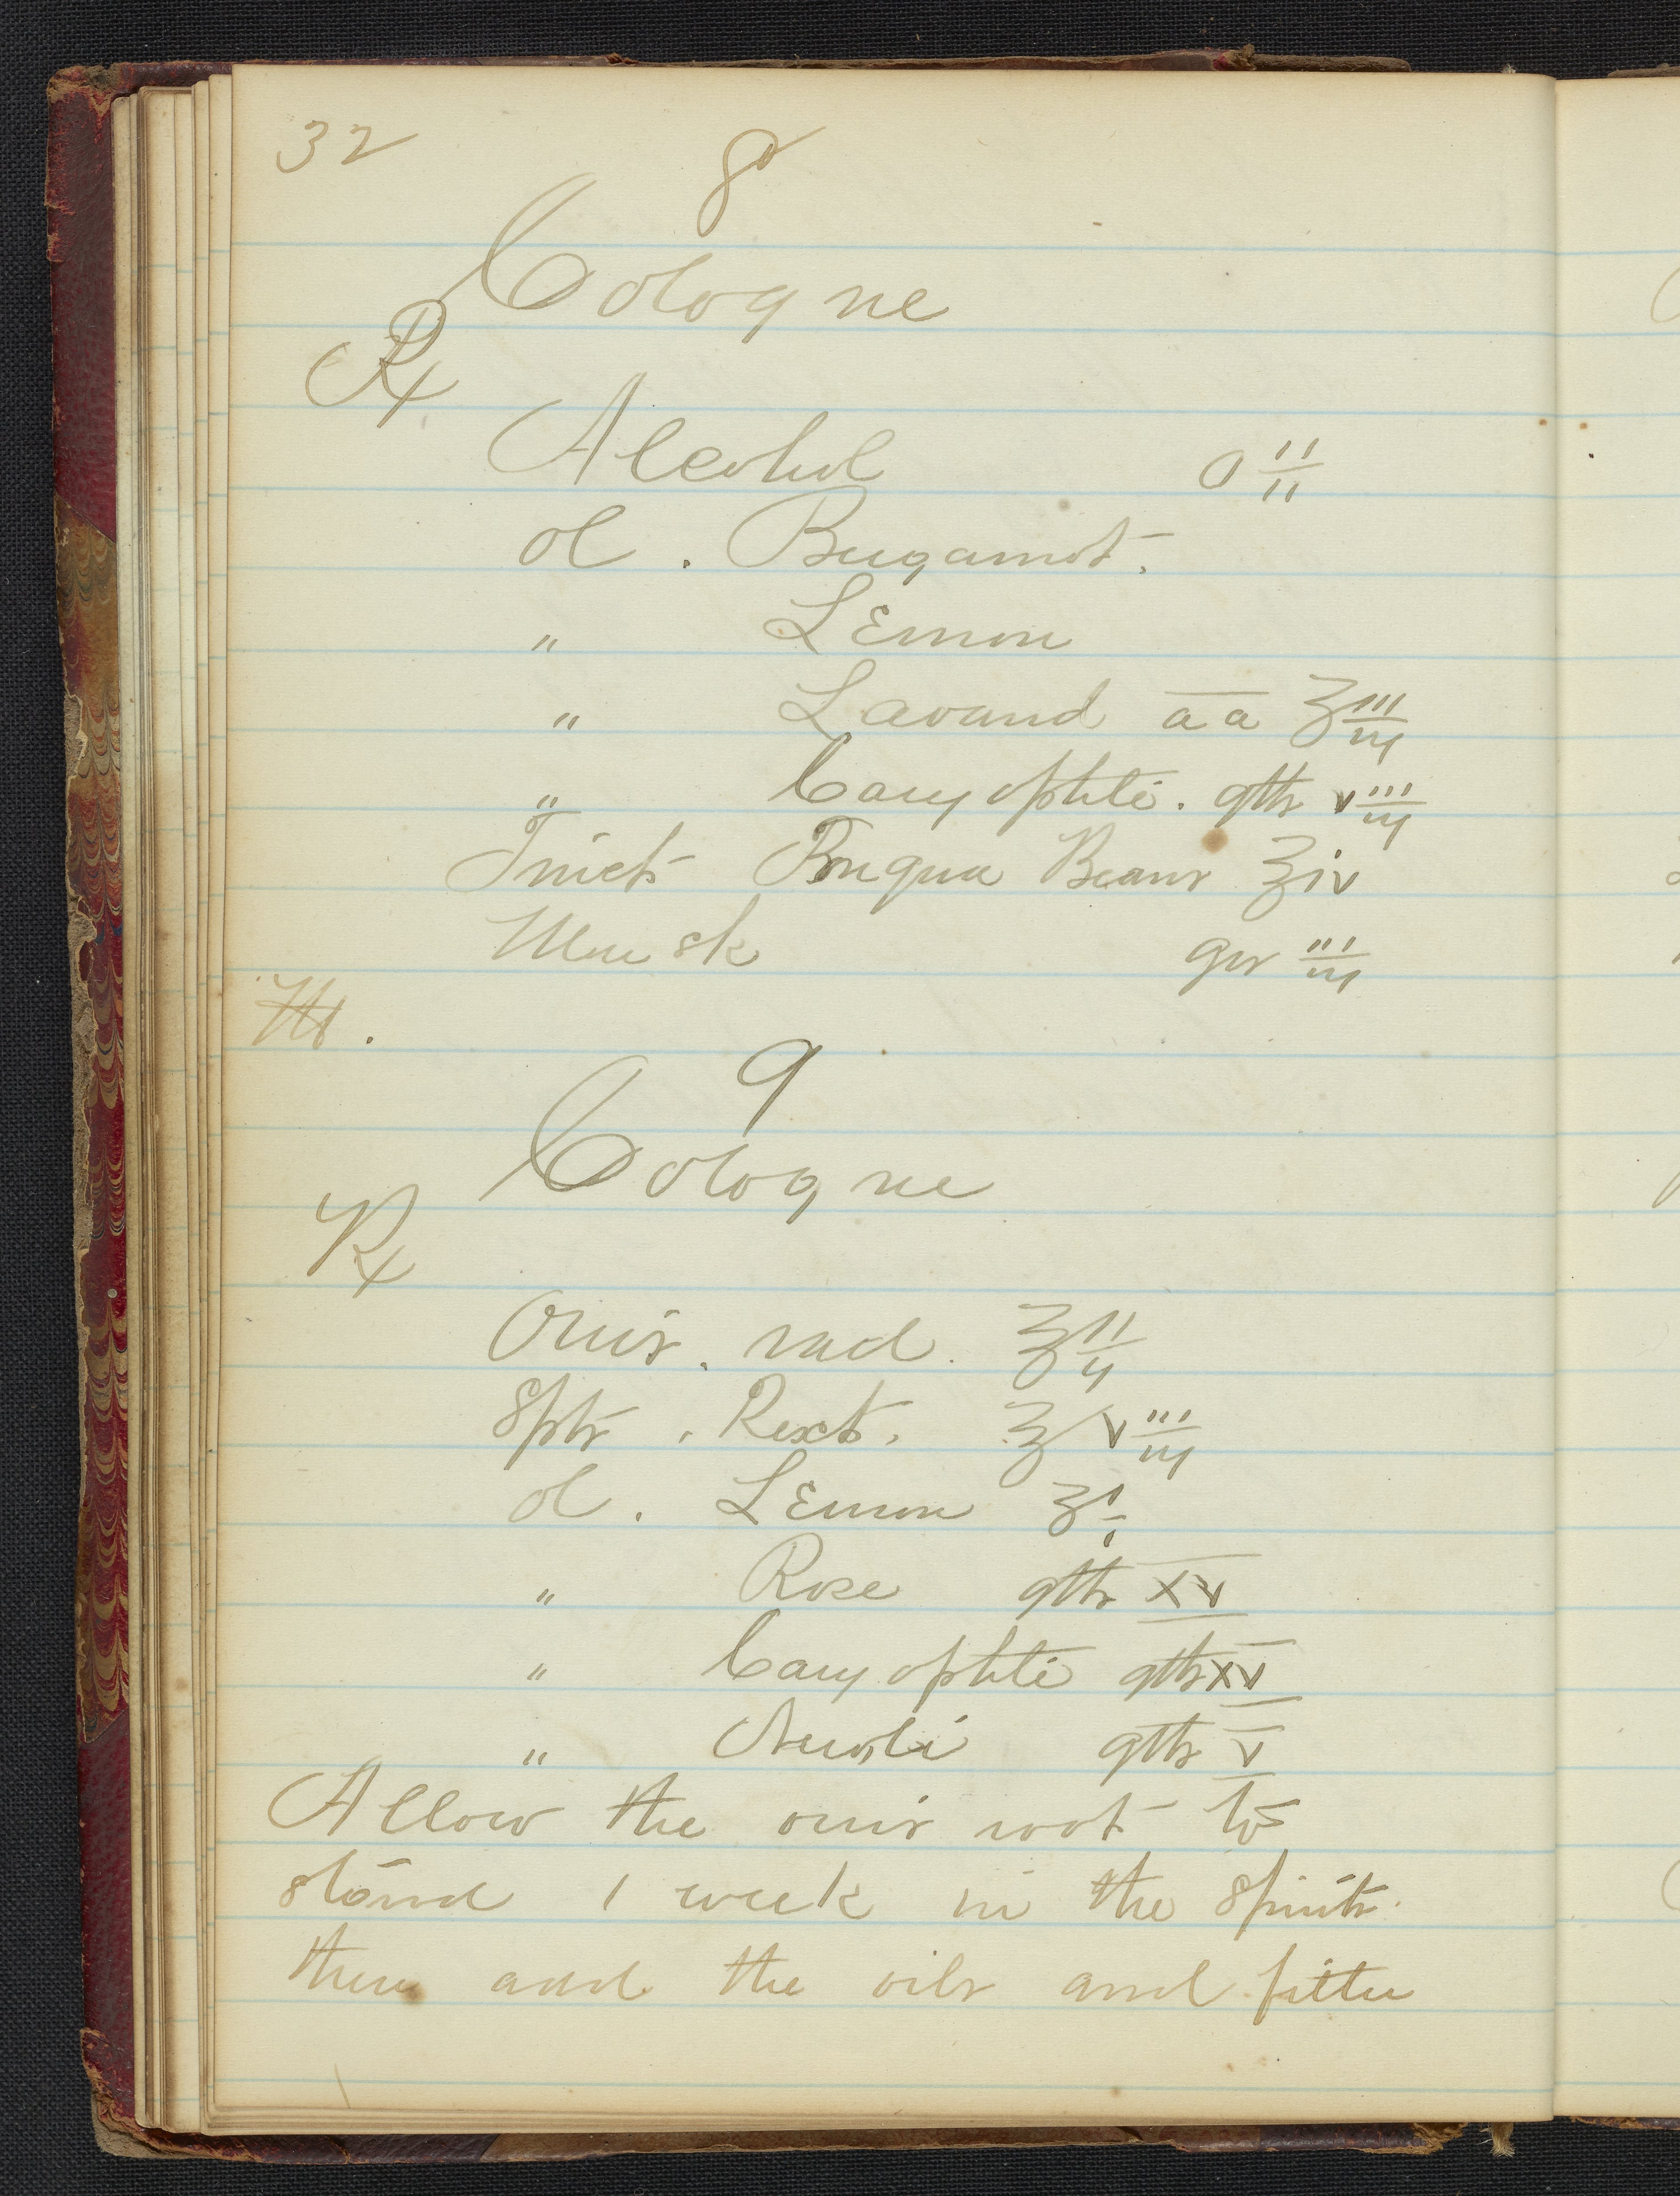 32
8
Cologne
℞
Alcohol O ii
Ol. Bergamot.
" Lemon
" Lavand āā ʒ iii
" Caryophlli. gtts viii
Tinct Tonqua Beans ℥ iv
Musk grs iii
M.
9
Cologne
℞
Orris. rad. ℥ ii
Spts. Rect. ℥ viii
Ol. Lemon ʒ i
" Rose gtts xv
" Caryophlli gtts xv
" Neroli gtts v
Allow the orris root to
stand 1 week in the spirits.
then add the oils and filter